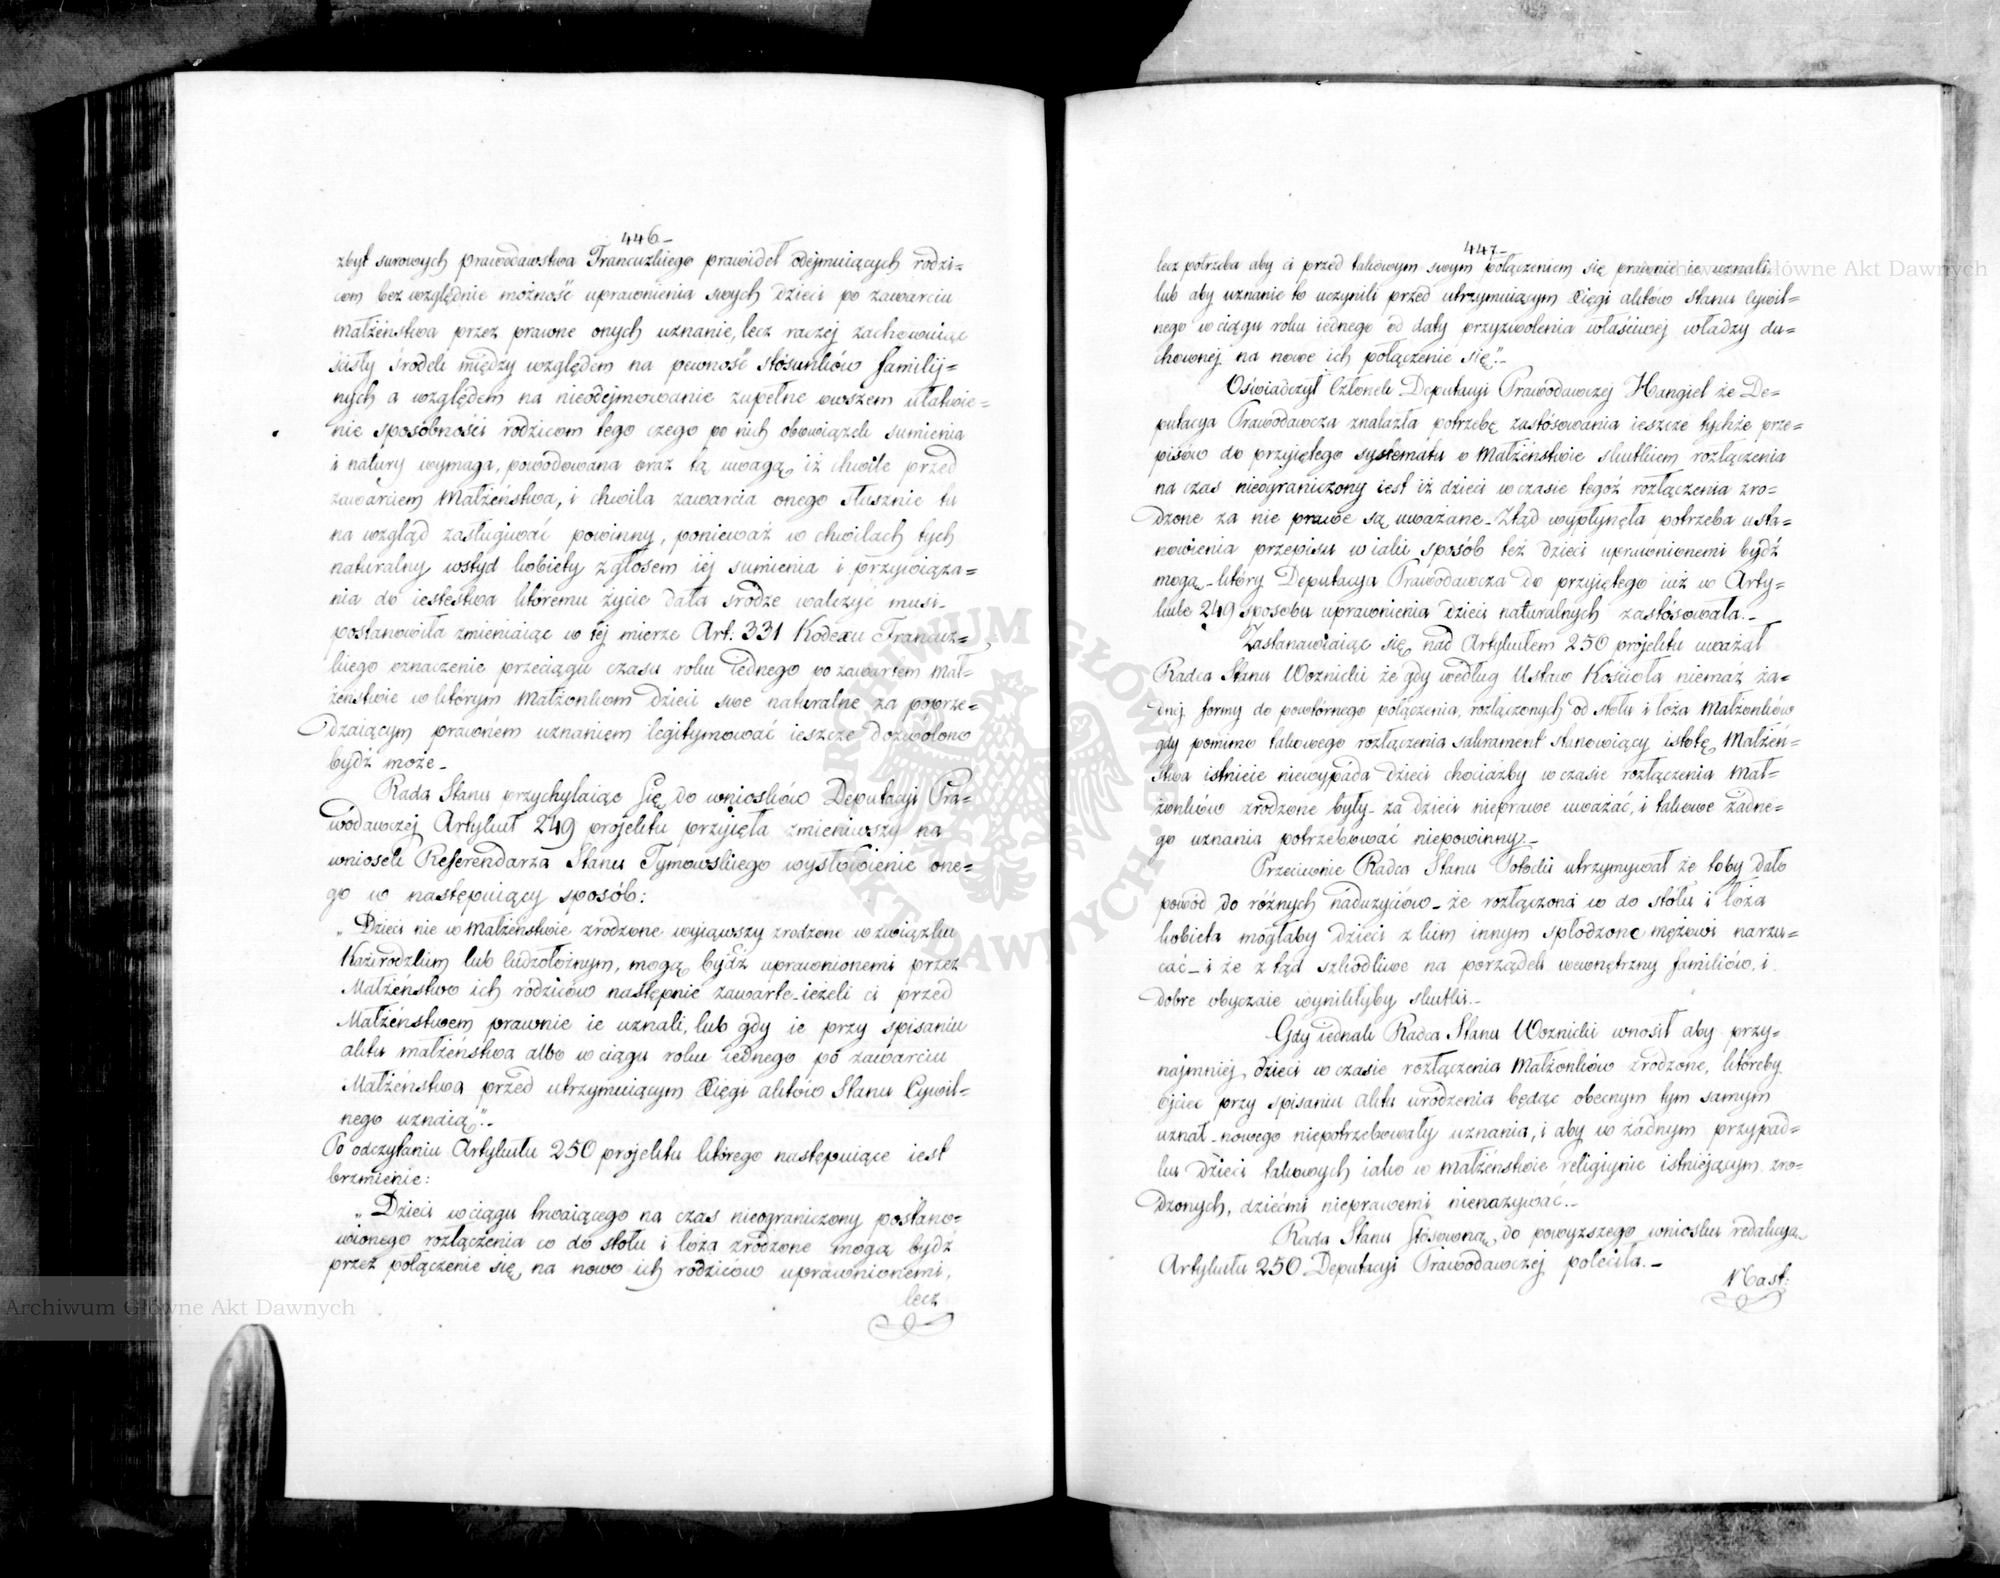 446-
zbyt surowych prawodawstwa Francuzkiego prawideł odejmuiących rodzi=
com bezwzględnie możność uprawnienia swych dzieci po zawarciu
małżeństwa przez prawne onych uznanie, lecz raczej zachowuiąc
ścisły środek między względem na pewność stósunków familij=
nych a względem na nieodejmowanie zupełne owszem ułatwie=
nie sposobności rodzicom tego czego po nich obowiązek sumienia
i natury wymaga, powodowana oraz tą uwagą, iż chwile przed
zawarciem Małżeństwa, i chwila zawarcia onego słusznie tu
na wzgląd zasługiwać powinny, ponieważ w chwilach tych
naturalny wstyd kobiety z głosem iéj sumienia i przywiąza=
nia do iestestwa któremu życie dała srodze walczyć musi_
postanowiła zmieniaiąc w téj mierze Art: 331 Kodexu Francuz=
kiego oznaczenie przeciągu czasu roku iednego po zawartem Mał=
żeństwie w którym Małżonkom dzieci swe naturalne za poprze=
dzaiącym prawném uznaniem legitymować ieszcze dozwolono
bydź może_
Rada Stanu przychylaiąc się do wniosków Deputacyi Pra=
wodawczej Artykuł 249 projektu przyięła zmieniwszy na
wniosek Referendarza Stanu Tymowskiego wysłowienie one=
go w następuiący sposób:
„Dzieci nie w Małżeństwie zrodzone wyiąwszy zrodzone w związku
Kazirodzkim lub cudzołożnym, mogą bydź uprawnionemi przez
Małżeństwo ich rodziców następnie zawarte_ieżeli ci przed
Małżeństwem prawnie ie uznali, lub gdy ie przy spisaniu
aktu małżeństwa albo w ciągu roku iednego po zawarciu
Małżeństwa przed utrzymuiącym Xięgi aktów Stanu Cywil=
nego uznaią."_
Po odczytaniu Artykułu 250 projektu którego następuiące iest
brzmienie:
„Dzieci w ciągu trwaiącego na czas nieograniczony postano=
wionego rozłączenia co do stołu i łoża zrodzone mogą bydź
przez połączenie się, na nowo ich rodziców uprawnionemi,
lecz
447-
lecz potrzeba aby ci przed takowym swym połączeniem się prawnie ie uznali,
lub aby uznanie to uczynili przed utrzymuiącym Xięgi aktów stanu Cywil=
nego w ciągu roku iednego od daty przyzwolenia właściwej władzy du=
chownéj na nowe ich połączenie się."_
Oświadczył Członek Deputacyi Prawodawczej Hangiel że De=
putacya Prawodawcza znalazła potrzebę zastósowania ieszcze tychże prze=
pisów do przyiętego systematu w Małżeństwie skutkiem rozłączenia
na czas nieograniczony iest iż dzieci w czasie tegoż rozłączenia zro=
dzone za nie prawe są uważane_ Ztąd wypłynęła potrzeba usta=
nowienia przepisu w iaki sposób też dzieci uprawnionemi bydź
mogą_który Deputacya Prawodawcza do przyiętego iuż w Arty=
kule 249 sposobu uprawnienia dzieci naturalnych zastósowała._
Zastanawiaiąc się nad Artykułem 250 projektu uważał
Radca Stanu Woznicki że gdy według Ustaw Kościoła niemasz ża=
dnéj formy do powtórnego połączenia, rozłączonych od stołu i łoża Małżonków
gdy pomimo takowego rozłączenia sakrament stanowiący istotę Małżeń=
stwa istnieie niewypada dzieci chociażby w czasie rozłączenia Mał=
żonków zrodzone były_ za dzieci nieprawe uważać, i takowe żadne=
go uznania potrzebować niepowinny._
Przeciwnie Radca Stanu Potocki utrzymywał że toby dało
powód do różnych nadużyciów_ że rozłączona co do stołu i łoża
kobieta mogłaby dzieci z kim innym spłodzone mężowi narzu=
cać_ i że z tąd szkodliwe na porządek wewnętrzny familiów, i
dobre obyczaie wynikłyby skutki._
Gdy iednak Radca Stanu Woznicki wnosił aby przy=
najmniej dzieci w czasie rozłączenia Małżonków zrodzone, któreby
ojciec przy spisaniu Aktu urodzenia będąc obecnym tym samym
uznał_nowego niepotrzebowały uznania, i aby w żadnym przypad=
ku dzieci takowych iako w małżeństwie religiynie istniejącym zro=
dzonych, dziećmi nieprawemi nienazywać._
Rada Stanu stósowną do powyższego wniosku redakcyą
Artykułu 250 Deputacyi Prawodawczej poleciła._
Nast:
Archiwum Główne Akt Dawnych
Archiwum Główne Akt Dawnych
ARCHIWUM GŁÓWNE AKT DAWNYCH